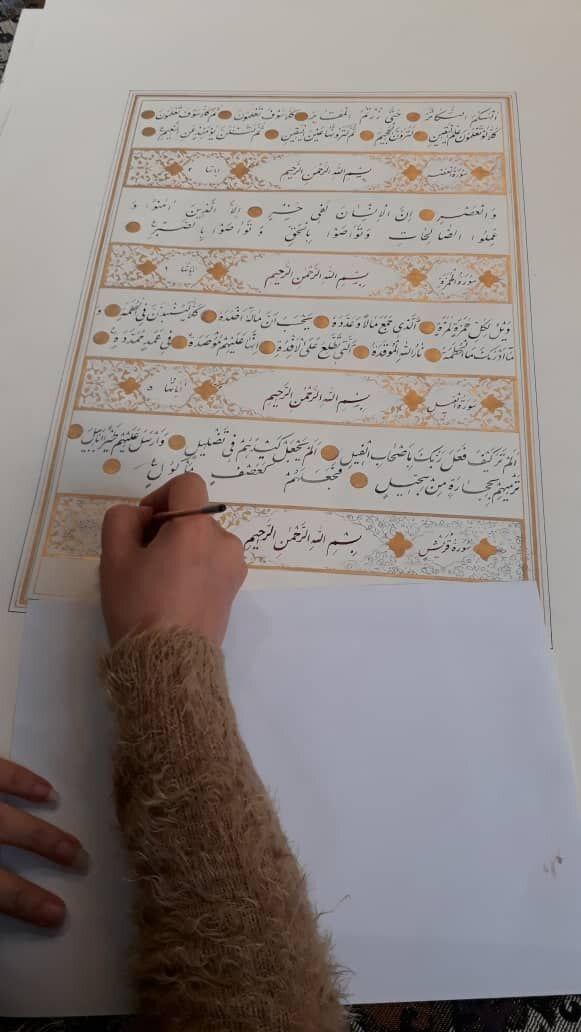 اَلْهٰیكُمُ التَّكٰاثُرُ حَتّٰی زُرْتُمُ الْمَقٰابِرَ كَلّٰا سَوْفَ تَعْلَمُونَ ثُمَّ كَلّٰا سَوْفَ تَعْلَمُونَ
كَلّٰا لَوْ تَعْلَمُونَ عِلْمَ الْیَقینِ لَتَرَوُنَّ الْجَحیمَ ثُمَّ لَتَرَوُنَّهٰا عَیْنَ الْیَقینِ ثُمَّ لَتُسْئَلُنَّ یَوْمَئِذٍ عَنِ النَّعیمِ
سُورَةُ الْعَصْرِ بِسْمِ اللّٰهِ الرَّحْمٰنِ الرَّحیمِ آیاتها ٣
وَ الْعَصْرِ اِنَّ الْاِنْسٰانَ لَفی خُسْرٍ اِلَّا الَّذینَ اٰمَنُوا وَ
عَمِلُوا الصّٰالِحٰاتِ وَ تَوٰاصَوْا بِالْحَقِّ وَ تَوٰاصَوْا بِالصَّبْرِ
سُورَةُ الْهُمَزَةِ بِسْمِ اللّٰهِ الرَّحْمٰنِ الرَّحیمِ آیاتها ٩
وَیْلٌ لِكُلِّ هُمَزَةٍ لُمَزَةٍ اَلَّذی جَمَعَ مٰالًا وَ عَدَّدَهُ یَحْسَبُ اَنَّ مٰالَهُ اَخْلَدَهُ كَلّٰا لَیُنْبَذَنَّ فِی الْحُطَمَةِ وَ
مٰا اَدْرٰیكَ مَا الْحُطَمَةُ نٰارُ اللّٰهِ الْمُوقَدَةُ اَلَّتی تَطَّلِعُ عَلَی الْاَفْئِدَةِ اِنَّهٰا عَلَیْهِمْ مُؤْصَدَةٌ فی عَمَدٍ مُمَدَّدَةٍ
سُورَةُ الْفیلِ بِسْمِ اللّٰهِ الرَّحْمٰنِ الرَّحیمِ آیاتها ٥
اَلَمْ تَرَ كَیْفَ فَعَلَ رَبُّكَ بِاَصْحٰابِ الْفیلِ اَلَمْ یَجْعَلْ كَیْدَهُمْ فی تَضْلیلٍ وَ اَرْسَلَ عَلَیْهِمْ طَیْرًا اَبٰابیلَ
تَرْمیهِمْ بِحِجٰارَةٍ مِنْ سِجّیلٍ فَجَعَلَهُمْ كَعَصْفٍ مَأْكُولٍ
سُورَةُ قُرَیْشٍ بِسْمِ اللّٰهِ الرَّحْمٰنِ الرَّحیمِ